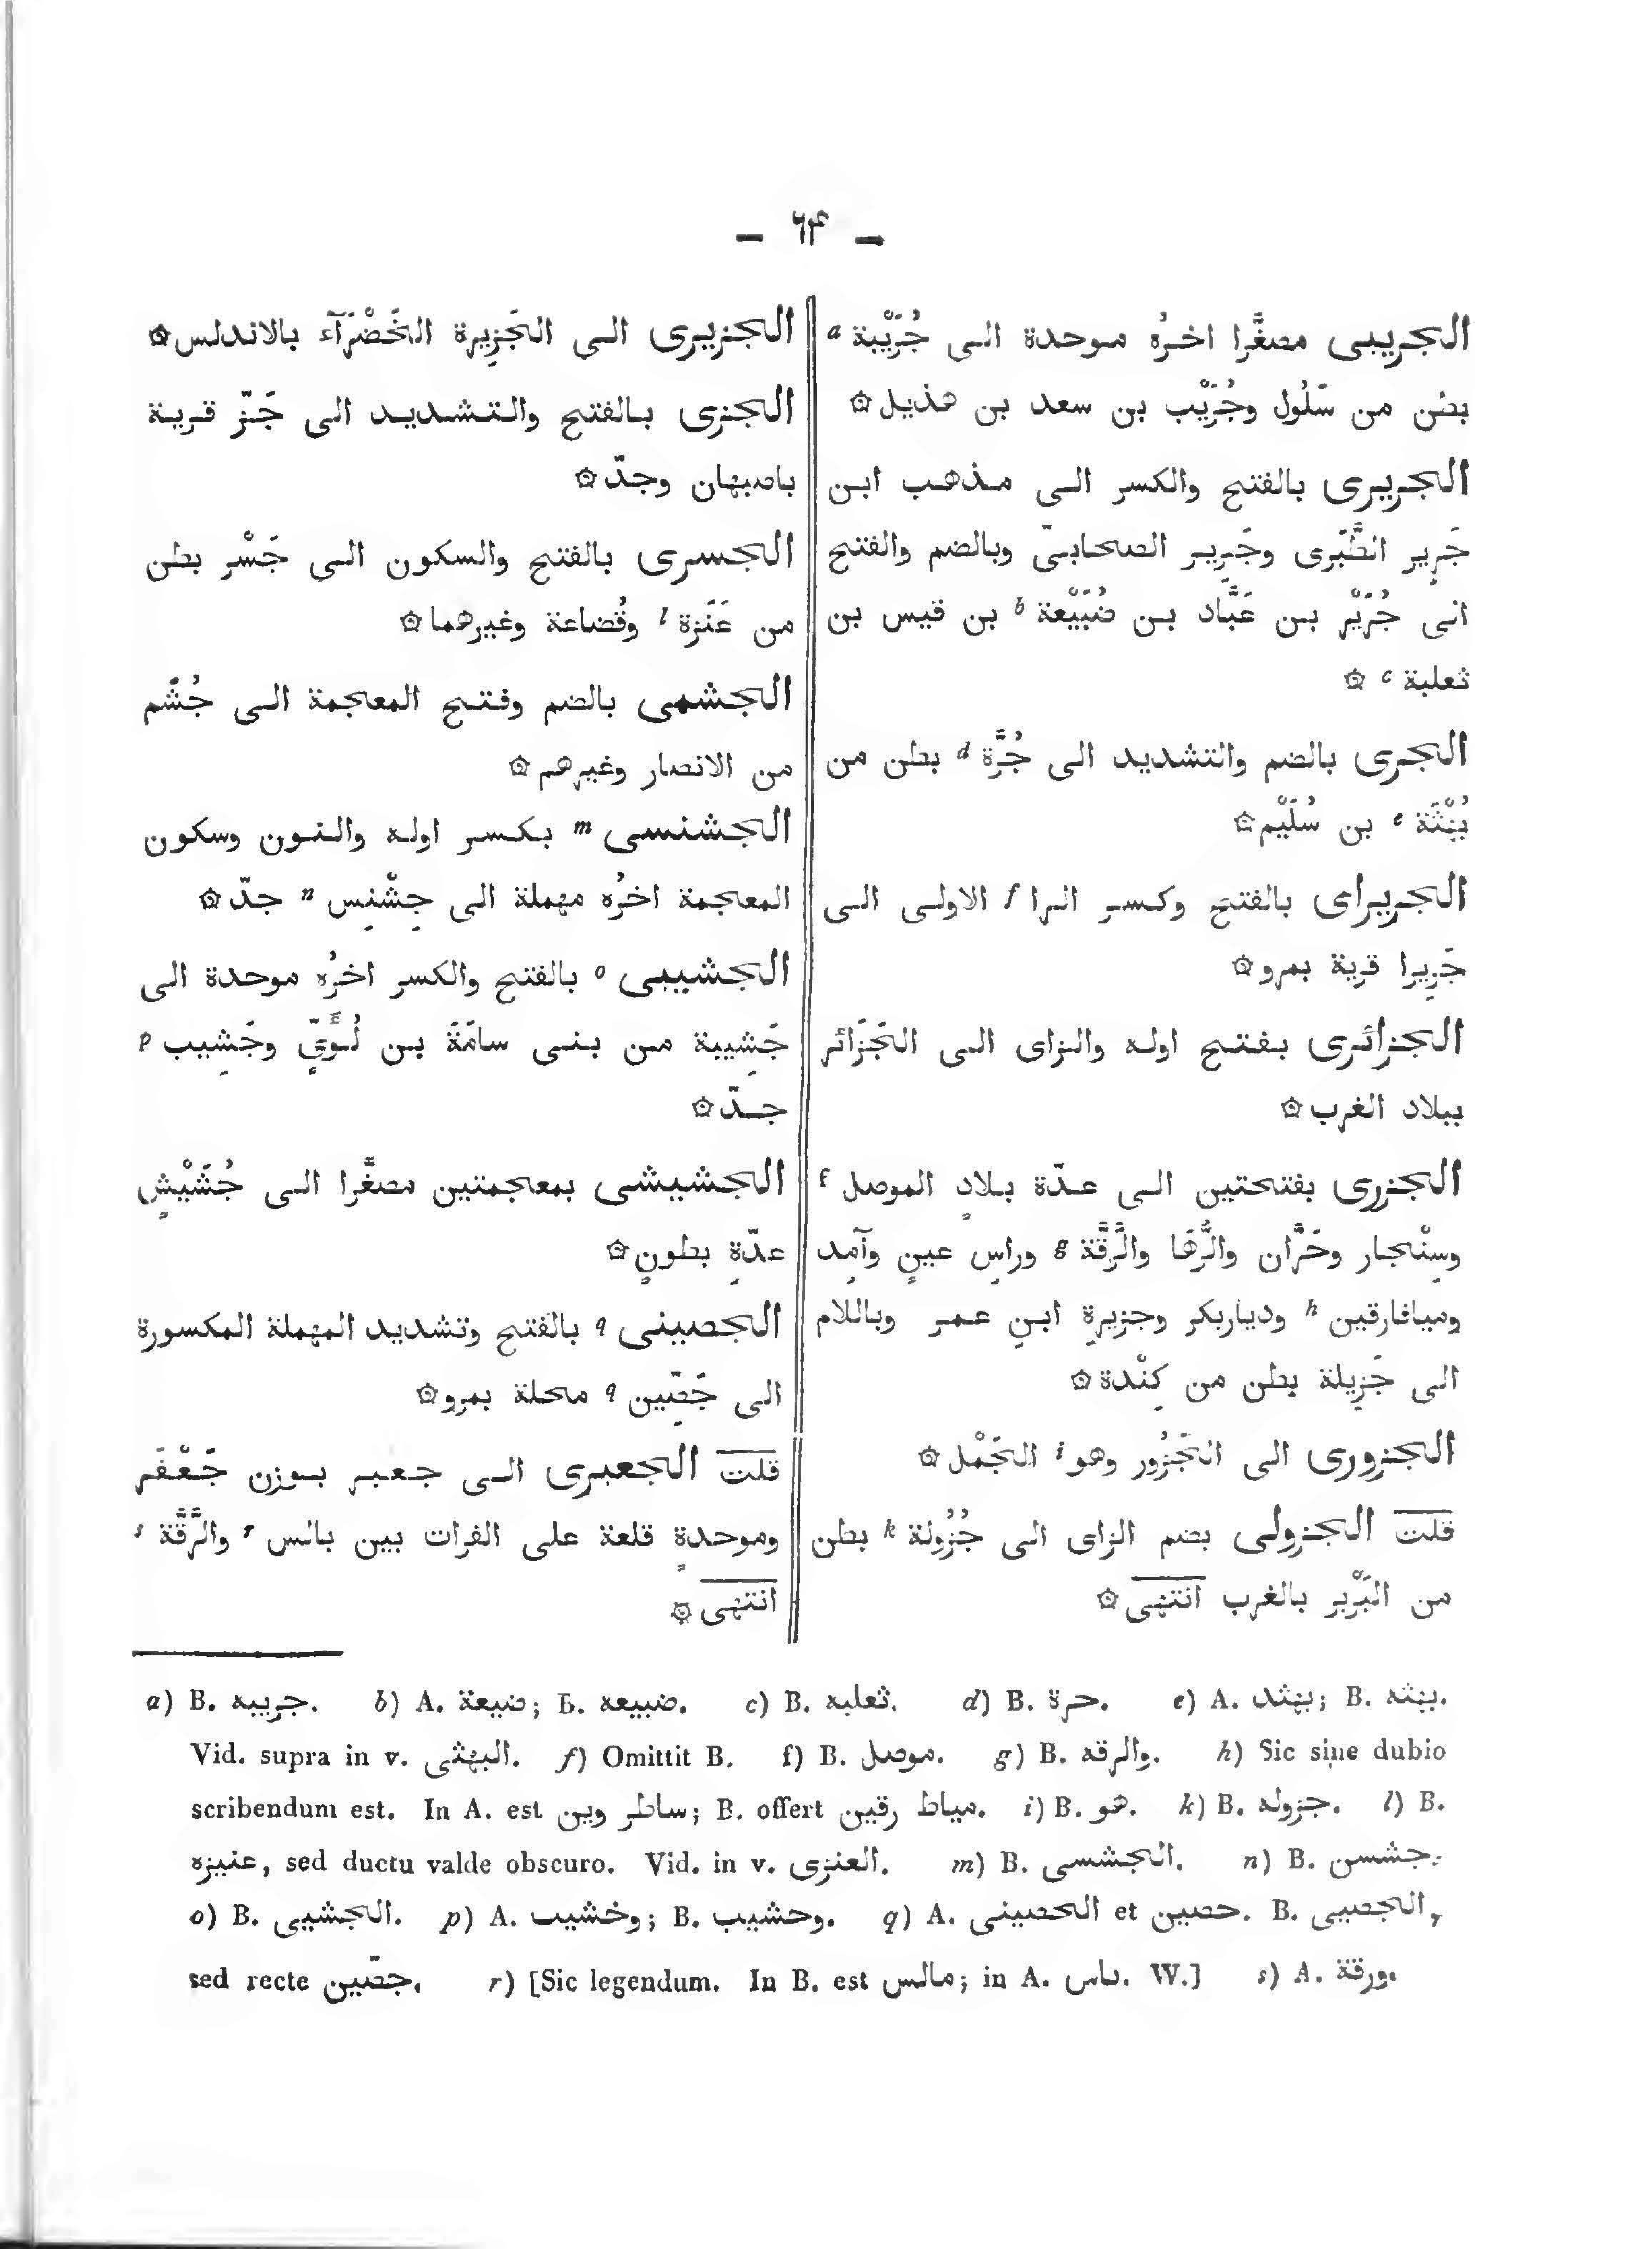 — ٦۴ —
الجريبى مصغَّرا اخرُه موحدة الى جُرَيْبة a
بطن من سَلُول وجُرَيْب بن سعد بن هذيل ۞
الجريرى بالفتح والكسر الى مذهب ابن
جَرِير الطَّبَرى وجَرِير الصحابىّ وبالضم والفتح
الى جُرَيْر بن عَبَّاد بن ضُبَيْعة b بن قيس بن
ثعلبة c ۞
الجرى بالضم والتشديد الى جُرَّة d بطن من
بُهْثَة e بن سُلَيْم ۞
الجريراى بالفتح وكسر الرا f الاولى الى
جَرِيرا قرية بمرو ۞
الجزائرى بفتح اوله والزاى الى الجَزَائر
ببلاد الغرب ۞
الجزرى بفتحتين الى عدّة بلادٍ الموصل f
وسِنْجار وحَرَّان والرُّهَا والرَّقَّة g وراسِ عينٍ وآمِد
وميافارقين h وديارِبكر وجزيرةِ ابنِ عمر وباللام
الى جَزِيلة بطن من كِنْدة ۞
الجزورى الى الجَزُور وهو i الجَمْل ۞
قلت الجزولى بضم الزاى الى جُزُولة k بطن
من البَرْبر بالغرب انتهى ۞
الجزيرى الى الجَزِيرة الخَضْرَآء بالاندلس ۞
الجزى بالفتح والتشديد الى جَزّ قرية
باصبهان وجدّ ۞
الجسرى بالفتح والسكون الى جَسْر بطن
من عَنَزة l وقُضاعة وغيرهما ۞
الجشمى بالضم وفتح المعجمة الى جُشَم
من الانصار وغيرهم ۞
الجشنسى m بكسر اوله والنون وسكون
المعجمة اخرُه مهملة الى جِشْنِس n جدّ ۞
الجشيبى o بالفتح والكسر اخرُه موحدة الى
جَشِيبة من بنى سامَةَ بن لُوَىٍّ وجَشِيب p
جدّ ۞
الجشيشى بمعجمتين مصغَّرا الى جُشَيْشٍ
عدّةِ بطونٍ ۞
الجصينى q بالفتح وتشديد المهملة المكسورة
الى جَصِّين q محلة بمرو ۞
قلت الجعبرى الى جعبر بوزن جَعْفَر
وموحدةٍ قلعة على الفرات بين بالس r والرَّقَّة s
انتهى ۞
a) B. جريبه. b) A. ضبيعة; B. ضبيعه. c) B. ثعلبه. d) B. حرة. e) A. بهثد; B. بهثه.
Vid. supra in v. البهثى. f) Omittit B. f) B. موصل. g) B. والرقه. h) Sic sine dubio
scribendum est. In A. est ساطر وين; B. offert مياط رقين. i) B. هو. k) B. جزوله. l) B.
عنيزه, sed ductu valde obscuro. Vid. in v. العنزى. m) B. الجشسى. n) B. جشسن.
o) B. الجشيى. p) A. وخشيب; B. وحشيب. q) A. الحصينى et حصين. B. الجصيى,
sed recte جصّين. r) [Sic legendum. In B. est مالس; in A. ٮاس. W.] s) A. ورقة.